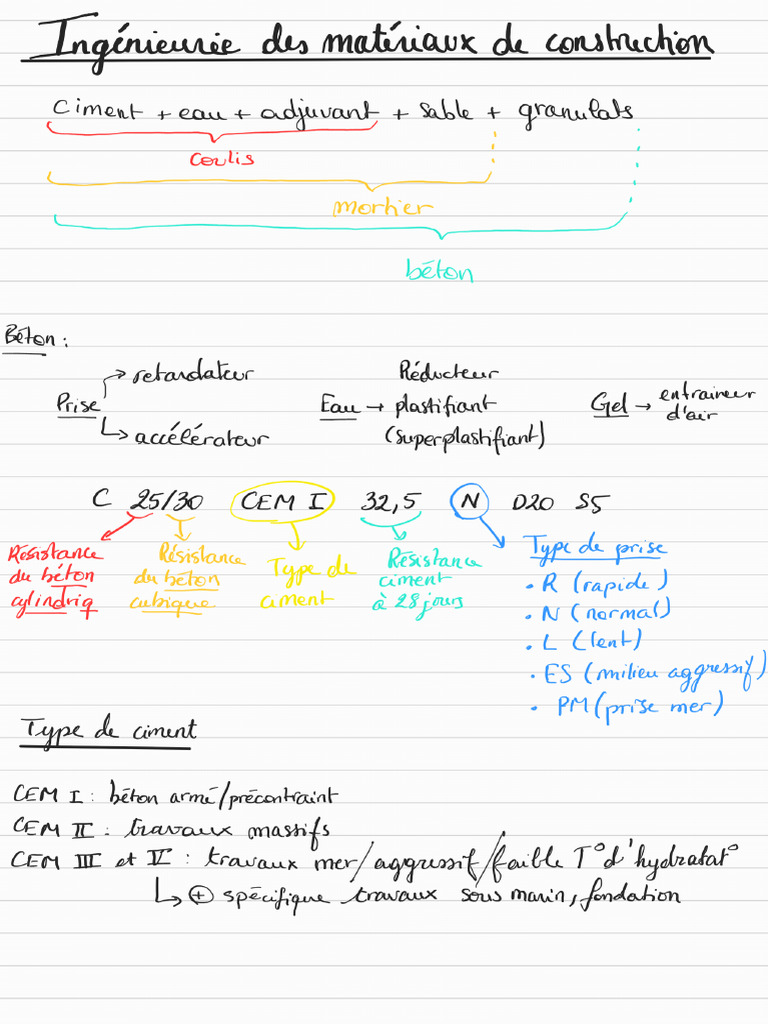 Ingénieurie des matériaux de construction
ciment + eau + adjuvant + sable + granulats
coulis
mortier
béton
Béton :
Prise → retardateur
↳ accélérateur
Eau → Réducteur
plastifiant
(superplastifiant)
Gel → entraineur
d'air
C 25/30 CEM I 32,5 N D20 S5
Résistance
du béton
cylindriq
Résistance
du béton
cubique
Type de
ciment
Résistance
ciment
à 28 jours
Type de prise
• R (rapide)
• N (normal)
• L (lent)
• ES (milieu aggressif)
• PM (prise mer)
Type de ciment
CEM I : béton armé/précontraint
CEM II : travaux massifs
CEM III et V : travaux mer/aggressif/faible T° d'hydratat°
↳ ⊕ spécifique travaux sous marin, fondation